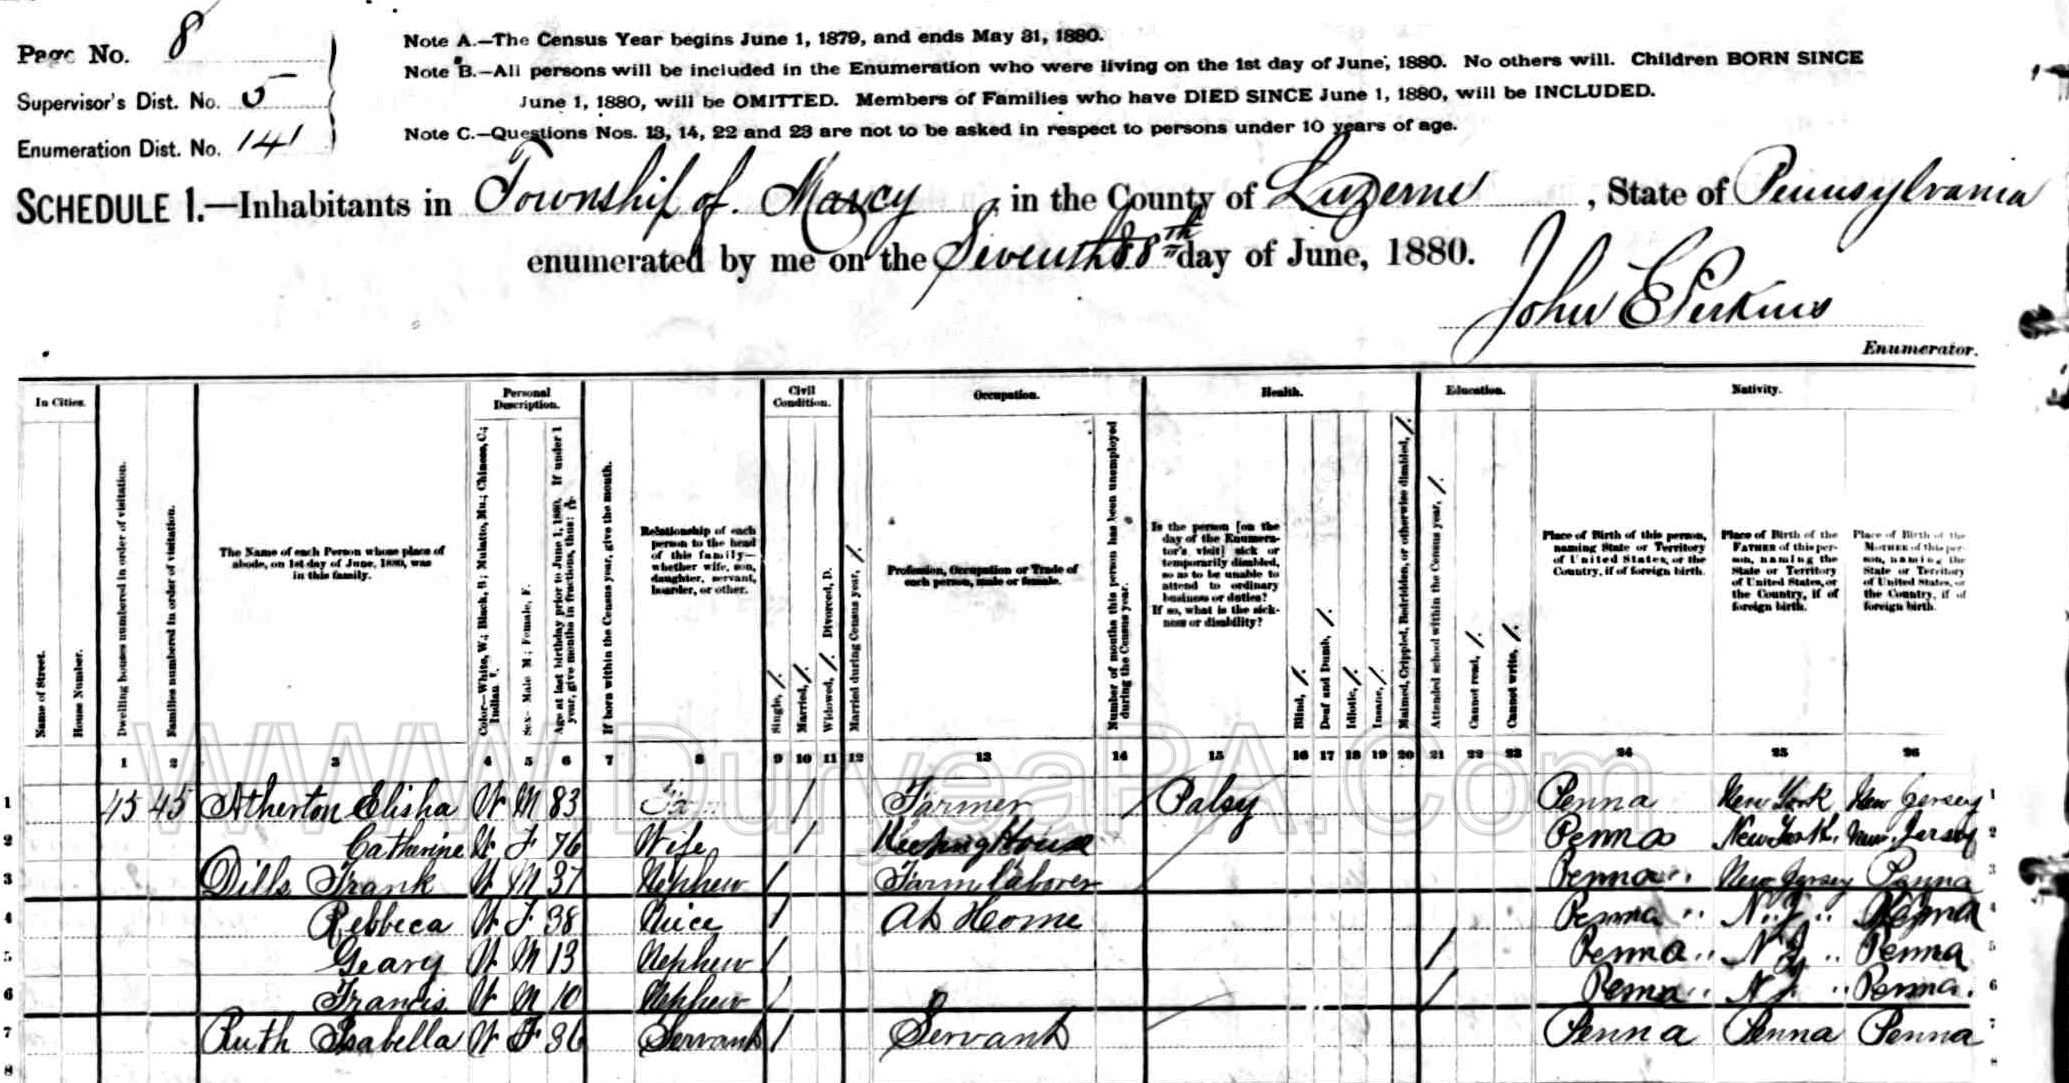 Page No. 8
Supervisor's Dist. No. 5
Enumeration Dist. No. 141
Note A.—The Census Year begins June 1, 1879, and ends May 31, 1880.
Note B.—All persons will be included in the Enumeration who were living on the 1st day of June, 1880. No others will. Children BORN SINCE
June 1, 1880, will be OMITTED. Members of Families who have DIED SINCE June 1, 1880, will be INCLUDED.
Note C.—Questions Nos. 13, 14, 22 and 23 are not to be asked in respect to persons under 10 years of age.
SCHEDULE 1.—Inhabitants in Township of Marcy, in the County of Luzerne, State of Pennsylvania
enumerated by me on the Seventh & 8th day of June, 1880.
John E Perkins
Enumerator.
In Cities. Personal Description. Civil Condition. Occupation. Health. Education. Nativity.
Name of Street.
House Number.
Dwelling houses numbered in order of visitation.
Families numbered in order of visitation.
The Name of each Person whose place of abode, on 1st day of June, 1880, was in this family.
Color—White, W.; Black, B.; Mulatto, Mu.; Chinese, C.; Indian I.
Sex—Male M; Female, F.
Age at last birthday prior to June 1, 1880. If under 1 year, give months in fractions, thus:
If born within the Census year, give the month.
Relationship of each person to the head of this family—whether wife, son, daughter, servant, boarder, or other.
Single, /.
Married, /.
Widowed, /. Divorced, D.
Married during Census year, /.
Profession, Occupation or Trade of each person, male or female.
Number of months this person has been unemployed during the Census year.
Is the person [on the day of the Enumerator's visit] sick or temporarily disabled, so as to be unable to attend to ordinary business or duties? If so, what is the sickness or disability?
Blind, /.
Deaf and Dumb, /.
Idiotic, /.
Insane, /.
Maimed, Crippled, Bedridden, or otherwise disabled, /.
Attended school within the Census year, /.
Cannot read, /.
Cannot write, /.
Place of Birth of this person, naming State or Territory of United States, or the Country, if of foreign birth.
Place of Birth of the FATHER of this person, naming the State or Territory of United States, or the Country, if of foreign birth.
Place of Birth of the MOTHER of this person, naming the State or Territory of United States, or the Country, if of foreign birth.
1 2 3 4 5 6 7 8 9 10 11 12 13 14 15 16 17 18 19 20 21 22 23 24 25 26
WWW.DuryeaPA.Com
1 45 45 Atherton Elisha W M 83 / Farmer / Palsy Penna New York New Jersey 1
2 Catherine W F 76 Wife / Keeping House Penna New York. New Jersey 2
3 Dills Frank W M 37 Nephew / Farm laborer Penna " New Jersey Penna 3
4 Rebbeca W F 38 Niece / At Home Penna " N. J " Penna 4
5 Geary W M 13 Nephew / / Penna " N J " Penna 5
6 Francis W M 10 Nephew / / Penna " N J " Penna. 6
7 Ruth Isabella W F 36 Servant / Servant Penna Penna Penna 7
8 8